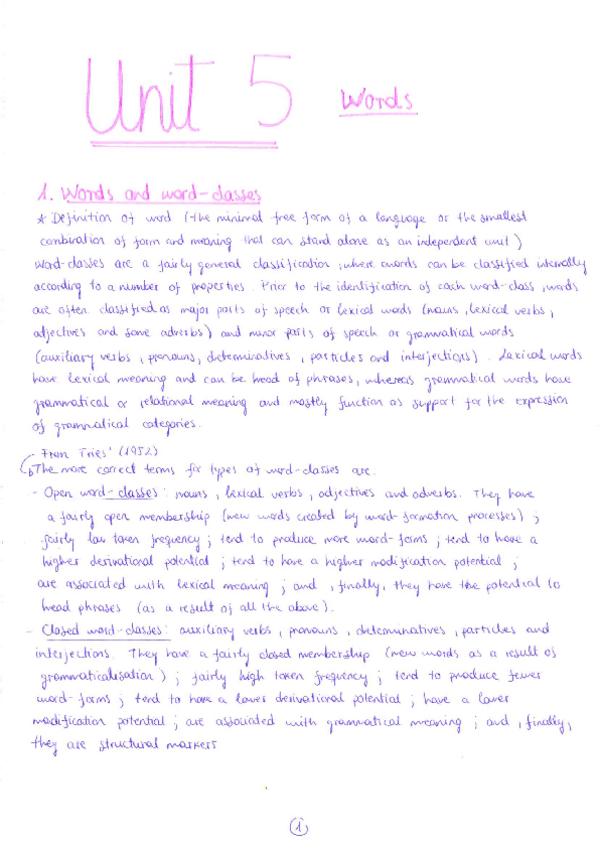 Unit 5 Words
1. Words and word-classes
* Definition of word (the minimal free form of a language or the smallest
combination of form and meaning that can stand alone as an independent unit)
Word-classes are a fairly general classification, where words can be classified internally
according to a number of properties. Prior to the identification of each word-class, words
are often classified as major parts of speech or lexical words (nouns, lexical verbs,
adjectives and some adverbs) and minor parts of speech or grammatical words
(auxiliary verbs, pronouns, determinatives, particles and interjections). Lexical words
have lexical meaning and can be head of phrases, whereas grammatical words have
grammatical or relational meaning and mostly function as support for the expression
of grammatical categories.
- From Fries' (1952)
The more correct terms for types of word-classes are.
- Open word-classes: nouns, lexical verbs, adjectives and adverbs. They have
a fairly open membership (new words created by word-formation processes);
fairly low token frequency; tend to produce more word-forms; tend to have a
higher derivational potential; tend to have a higher modification potential;
are associated with lexical meaning; and, finally, they have the potential to
head phrases (as a result of all the above).
- Closed word-classes: auxiliary verbs, pronouns, determinatives, particles and
interjections. They have a fairly closed membership (new words as a result of
grammaticalisation); fairly high token frequency; tend to produce fewer
word-forms; tend to have a lower derivational potential; have a lower
modification potential; are associated with grammatical meaning; and, finally,
they are structural markers
1